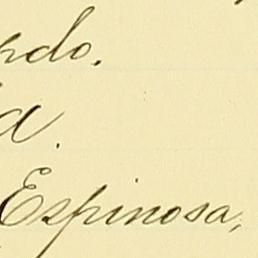 do.
a.
Espinosa,